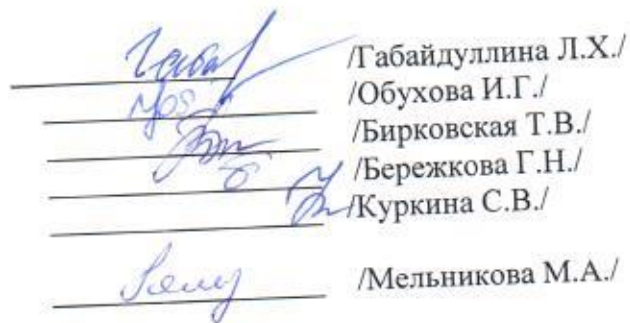 /Габайдуллина Л.Х./
/Обухова И.Г./
/Бирковская Т.В./
/Бережкова Г.Н./
/Куркина С.В./
/Мельникова М.А./